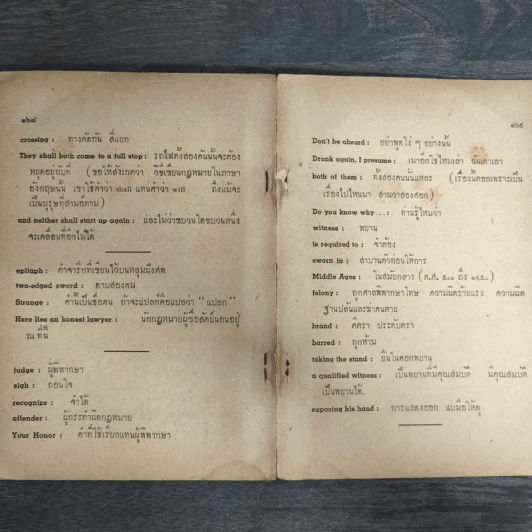 ๑๖๘
crossing : ทางตัดกัน สี่แยก
They shall both come to a full stop : รถไฟทั้งสองคันนั้นจะต้อง
หยุดอยู่กับที่ (ขอให้สังเกตว่า วิธีเขียนกฎหมายในภาษา
อังกฤษนั้น เขาใช้คำว่า shall แทนคำว่า will ถึงแม้จะ
เป็นบุรุษที่สามก็ตาม)
and neither shall start up again : และไม่ว่าขบวนใดขบวนหนึ่ง
จะเคลื่อนที่อีกไม่ได้
epitaph : คำจารึกที่เขียนไว้บนหลุมฝังศพ
two-edged sword : ดาบสองคม
Strange : คำนี้เป็นชื่อคน ถ้าจะแปลก็คือแปลว่า “แปลก”
Here lies an honest lawyer : นักกฎหมายผู้ซื่อสัตย์นอนอยู่
ณ ที่นี้
judge : ผู้พิพากษา
sigh : ถอนใจ
recognize : จำได้
offender : ผู้กระทำผิดกฎหมาย
Your Honor : คำที่ใช้เรียกแทนผู้พิพากษา
๑๖๙
Don't be absurd : อย่าพูดโง่ ๆ อย่างนั้น
Drunk again, I presume : เมาอีกใช่ไหมเอา
both of them : ทั้งสองคนนั้นแหละ (เรื่องนี้ตลกเพราะเป็น
เรื่องไปไหนมา สามวาสองศอก)
Do you know why...: ท่านรู้ไหมว่า
witness : พยาน
is required to : จำต้อง
sworn in : สาบานตัวก่อนให้การ
Middle Ages : ในสมัยกลาง (ค.ศ. ๕๐๐ ถึง ๑๔๕๐)
felony : ถูกศาลพิพากษาโทษ ความผิดร้ายแรง ความผิด
ฐานปล้นและฆ่าคนตาย
brand : ตีตรา ประทับตรา
barred : ถูกห้าม
taking the stand : ยืนในคอกพยาน
a qualified witness : เป็นพยานที่มีคุณสมบัติ มีคุณสมบัติ
เป็นพยานได้.
exposing his hand : การแสดงออก แบมือให้ดู